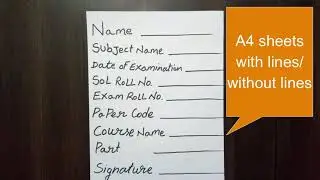 Name
Subject Name
Date of Examination
SOL Roll No.
Exam Roll No.
Paper Code
Course Name
Part
Signature
A4 sheets
with lines/
without lines